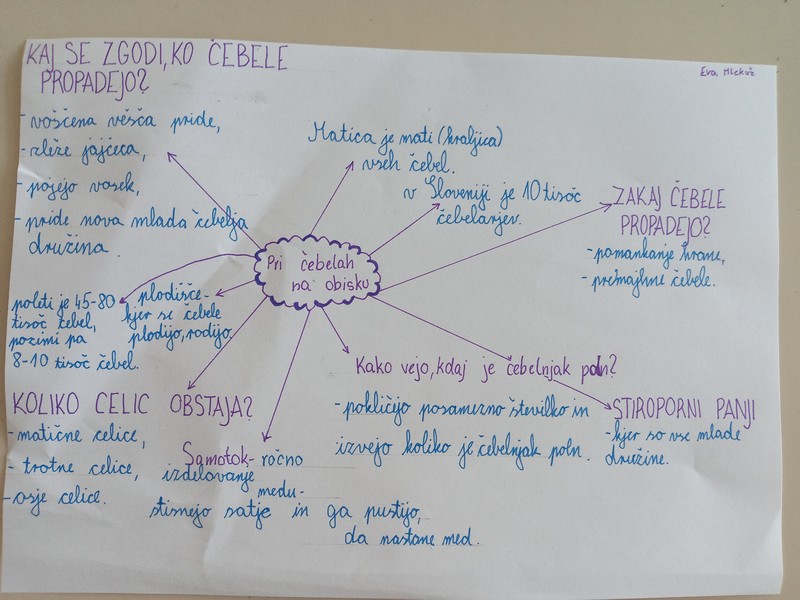 KAJ SE ZGODI, KO ČEBELE
PROPADEJO?
- voščena vešča pride,
- zleže jajčeca,
- pojejo vosek,
- pride nova mlada čebelja
družina.
Eva
Matica je mati (kraljica)
vseh čebel.
v Sloveniji je 10 tisoč
čebelarjev.
ZAKAJ ČEBELE
PROPADEJO?
- pomankanje hrane,
- premajhne čebele.
Pri čebelah
na obisku
poleti je 45-80
tisoč čebel,
pozimi pa
8-10 tisoč čebel.
plodišče-
kjer se čebele
plodijo, rodijo.
KOLIKO CELIC OBSTAJA?
- matične celice,
- trotne celice,
- osje celice.
Samotok- ročno
izdelovanje
medu-
stisnejo satje in ga pustijo,
da nastane med.
Kako vejo, kdaj je čebelnjak poln?
- pokličejo posamezno številko in
izvejo koliko je čebelnjak poln.
STIROPORNI PANJI
- kjer so vse mlade
družine.